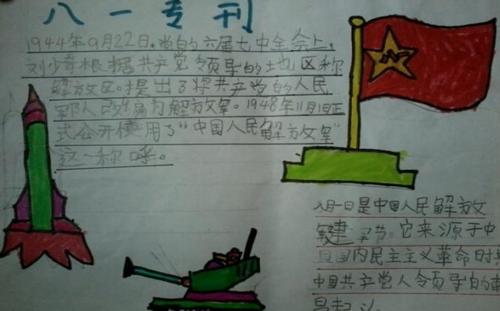 八一专刊
1944年9月22日，党的六届七中全会上，
刘少奇根据共产党领导的地区称
解放区。提出了将共产党的人民
军队改称为解放军。1948年11月1日正
式公开使用了“中国人民解放军”
这一称呼。
八一
八月一日是中国人民解放
军建军节。它来源于中
国国内民主主义革命时期
中国共产党人领导的南
昌起义